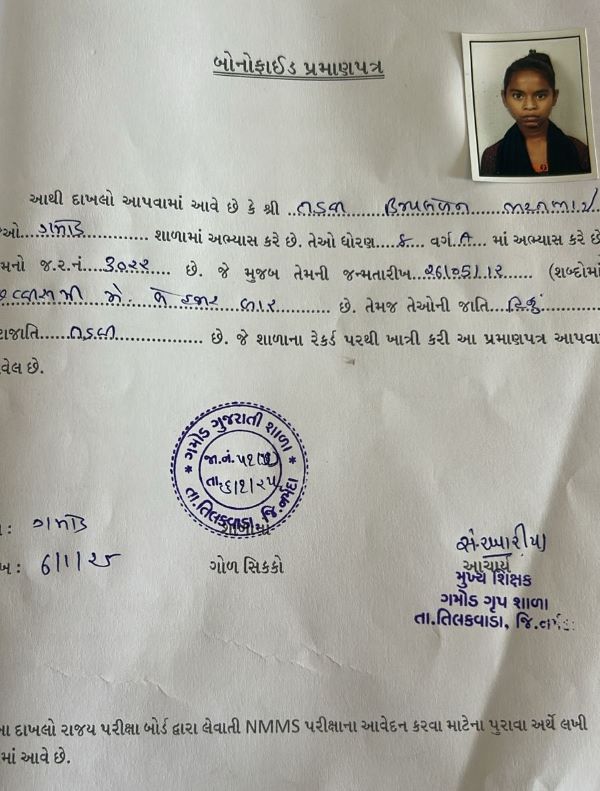 બોનોફાઈડ પ્રમાણપત્ર
આથી દાખલો આપવામાં આવે છે કે શ્રી ..તડવી
ઓ ..ગમોડ............ શાળામાં અભ્યાસ કરે છે. તેઓ ધોરણ...૮... વર્ગ.A.. માં અભ્યાસ કરે છે
મનો જ.ર.નં...૩૦૨૨......... છે. જે મુજબ તેમની જન્મતારીખ..26/05/12......... (શબ્દોમાં
મે. બે હજાર બાર............. છે. તેમજ તેઓની જાતિ...હિન્દુ............
ાજાતિ........તડવી.................... છે. જે શાળાના રેકર્ડ પરથી ખાત્રી કરી આ પ્રમાણપત્ર આપવા
વેલ છે.
* ગમોડ ગુજરાતી શાળા *
જા.નં.
તા.6/1/25
તા.તિલકવાડા, જિ.નર્મદા
: ગમોડ
ખ: 6/1/25
ગોળ સિક્કો
આચાર્ય
મુખ્ય શિક્ષક
ગમોડ ગૃપ શાળા
તા.તિલકવાડા, જિ.નર્મ
ા દાખલો રાજય પરીક્ષા બોર્ડ દ્વારા લેવાતી NMMS પરીક્ષાના આવેદન કરવા માટેના પુરાવા અર્થે લખી
માં આવે છે.